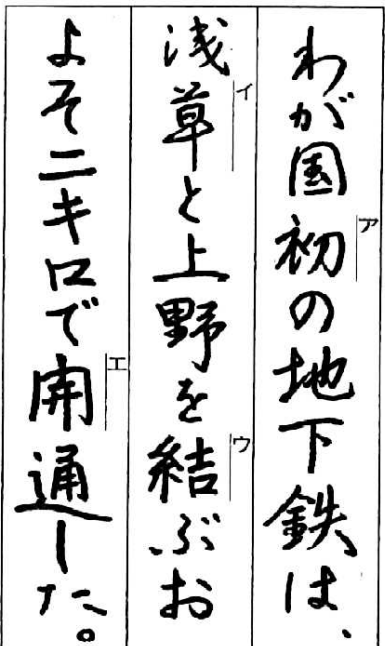 わが国初の地下鉄は、
浅草と上野を結ぶお
よそニキロで開通した。
ア
イ
ウ
エ